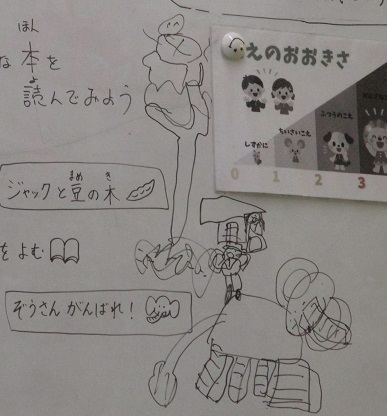 ほん
な本を
よ
読んでみよう
まめ き
ジャックと豆の木
をよむ
ぞうさん がんばれ!
えのおおきさ
しずかに
ちいさいこえ
ふつうのこえ
0 1 2 3